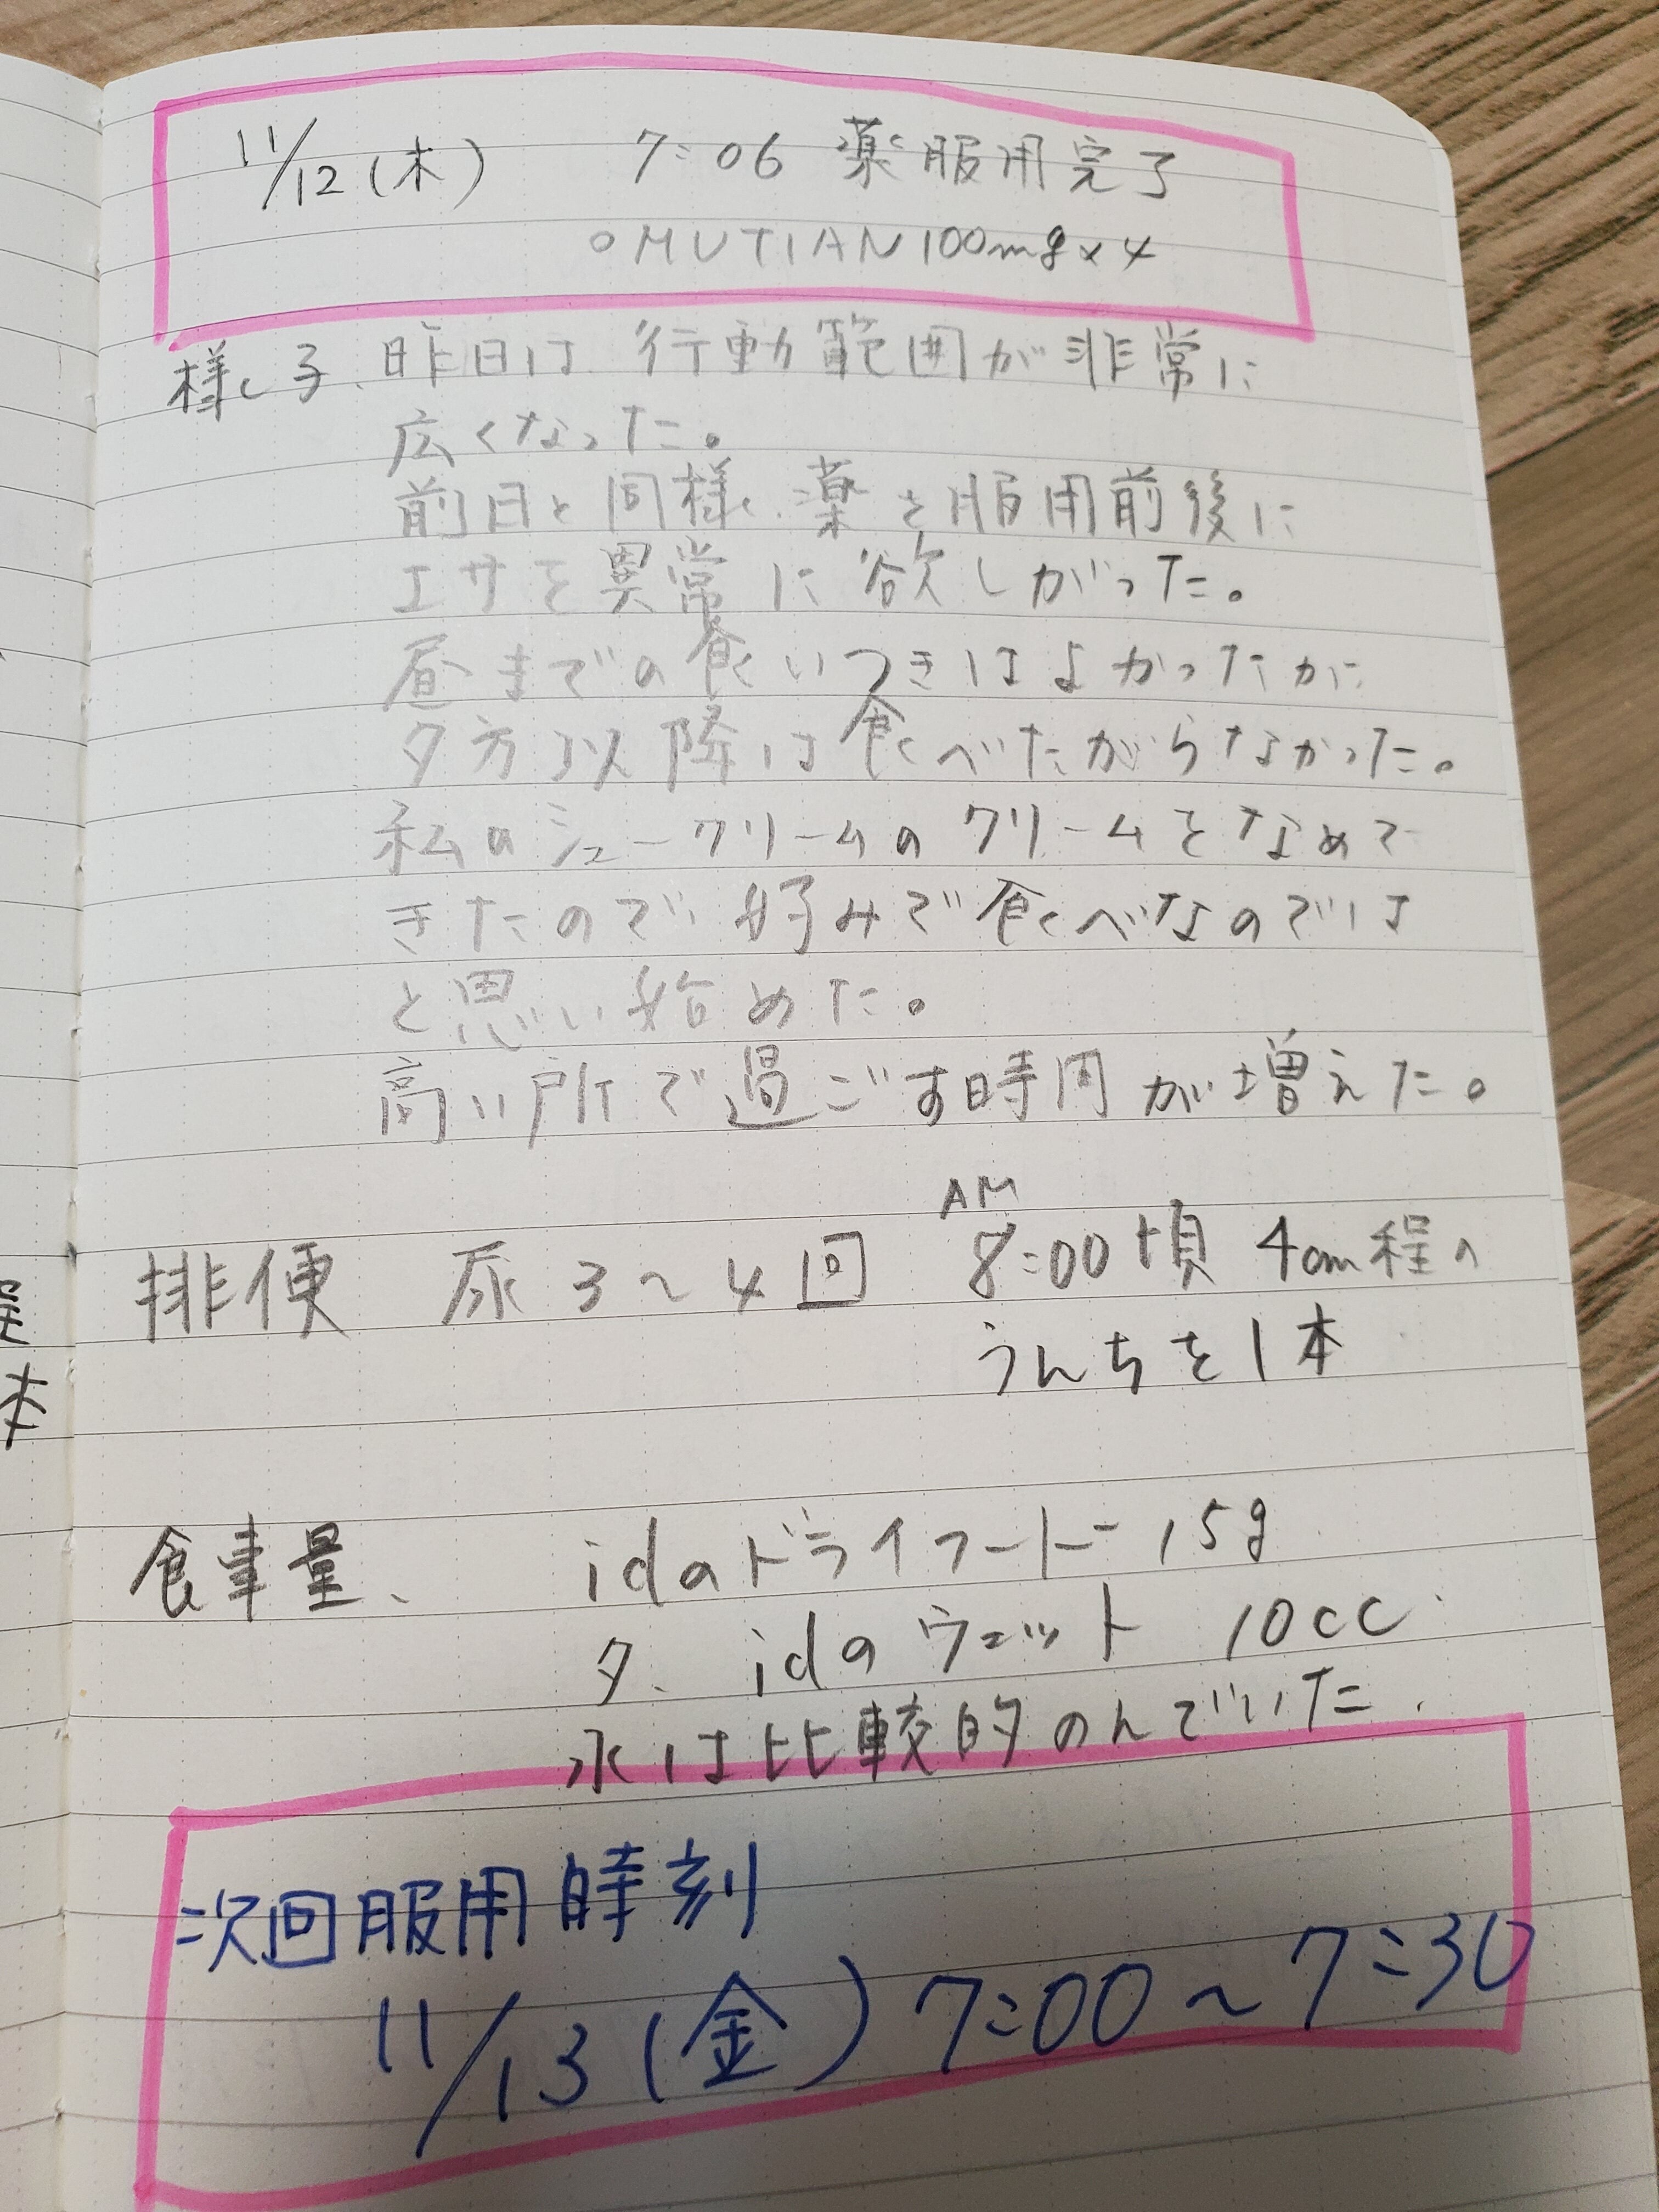 11/12(木) 7:06 薬服用完了
○MUTIAN100mg×4
様子、昨日は行動範囲が非常に
広くなった。
前日と同様、薬を服用前後に
エサを異常に欲しがった。
昼までの食いつきはよかったが
夕方以降は食べたがらなかった。
私のシュークリームのクリームをなめて
きたので好みで食べなのでは
と思い始めた。
高い所で過ごす時間が増えた。
排便 尿3〜4回 AM8:00頃 4cm程の
うんちを1本
食事量、 idのドライフード 15g
夕、idのウェット 10cc
水は比較的のんでいた。
次回服用時刻
11/13(金) 7:00〜7:30
本